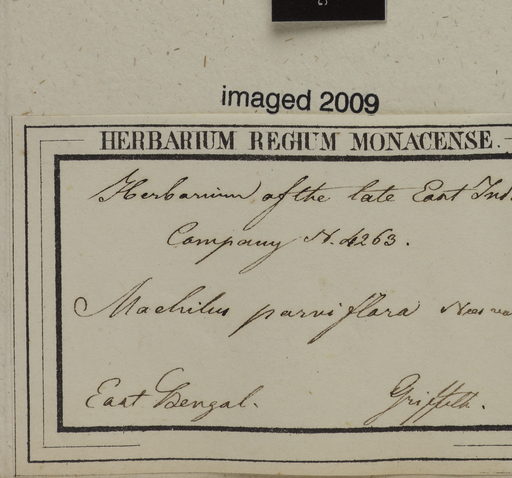 imaged 2009
HERBARIUM REGIUM MONACENSE.
Herbarium of the late East Ind
Company N. 4263.
Machilus parviflora
East Bengal. Griffith.